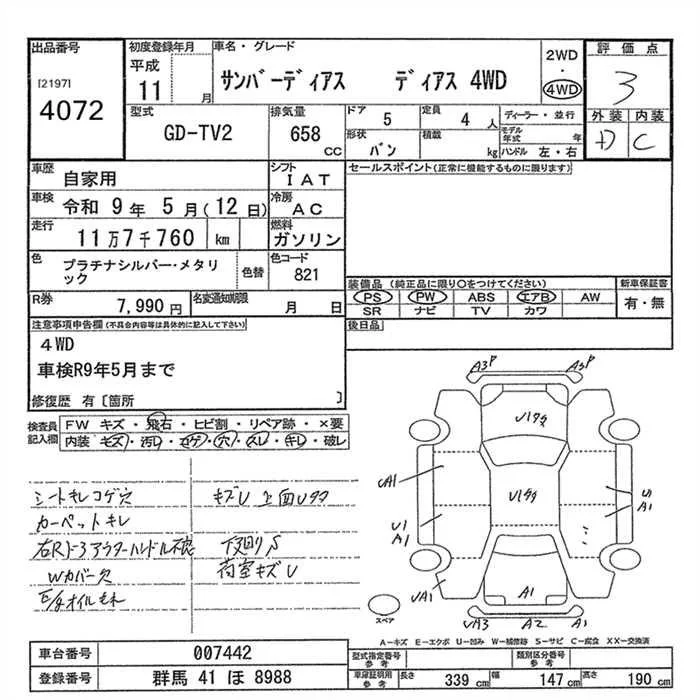 出品番号
[2197]
4072
初度登録年月
平成
11 月
車名・グレード
サンバーディアス ディアス 4WD
2WD
・
4WD
評価点
3
外装 内装
D C
型式
GD-TV2
排気量
658 CC
ドア 5
定員 4 人
ディーラー・並行
形状 バン
積載 kg
モデル年式 年
ハンドル 左・右
車歴 自家用
シフト IAT
車検 令和 9 年 5 月(12 日)
冷房 AC
走行 11万7千760 km
燃料 ガソリン
色 プラチナシルバー・メタリック
色替
色コード 821
R券 7,990 円
名変通知期限 月 日
セールスポイント(正常に機能するものに限ります)
装備品(純正品に限り○をつけてください)
新車保証書
PS PW ABS エアB AW
SR ナビ TV カワ
有・無
後日品
注意事項申告欄(不具合内容等は具体的に記入して下さい)
4WD
車検R9年5月まで
修復歴 有〔箇所 〕
検査員記入欄
FW キズ・飛石・ヒビ割・リペア跡・×要
内装・キズ・汚レ・コゲ・穴・スレ・キレ・破レ
シートキレコゲ穴
キズU 上面Uタク
カーペットキレ
下廻りS
Wカバー欠
荷室キズU
A3P A3P
Uタク
UA1
Uタク
U1
A1
U1
A1
UA1
A1
UA3 A2 A1
スペア
A-キズ E-エクボ U-凹み W-補修跡 S-サビ C-腐食 XX-交換済
車台番号 007442
登録番号 群馬 41 ほ 8988
型式指定番号 参考
類別区分番号 参考
車庫証明用 参考
長さ 339 cm
幅 147 cm
高さ 190 cm